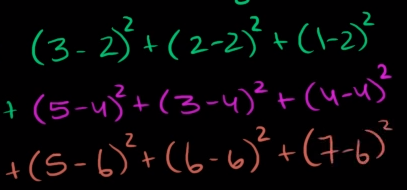 (3-2)² + (2-2)² + (1-2)²
+ (5-4)² + (3-4)² + (4-4)²
+ (5-6)² + (6-6)² + (7-6)²